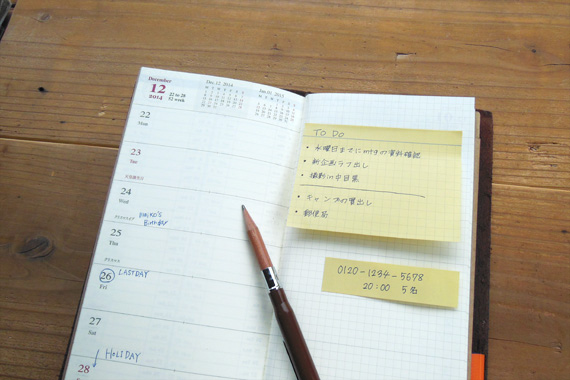 December
12
2014
22 to 28
52 week
Dec.12 2014
Jan.01 2015
22
Mon
23
Tue
天皇誕生日
24
Wed
25
Thu
26
Fri
LAST DAY
27
Sat
28
HOLIDAY
TO DO
・水曜日までにmtgの資料確認
・新企画ラフ出し
・撮影in中目黒
・キャンプの買出し
・郵便局
0120-1234-5678
20:00 5名